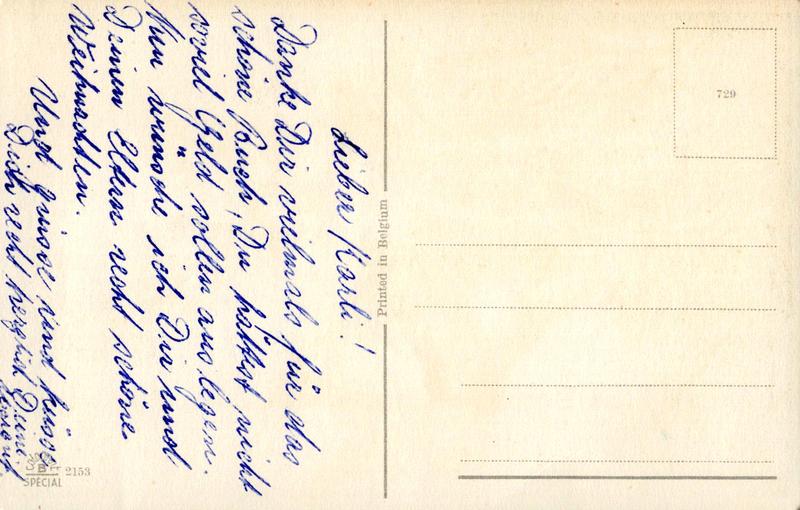 Lieber Karli!
Danke Dir vielmals für das
schöne Buch, Du hättest nicht
soviel Geld sollen auslegen.
Nun wünsche ich Dir und
Deinen Eltern recht schöne
Weihnachten.
Und grüsse und küsse
Dich recht herzlich Deine
Printed in Belgium
729
2153
SPÉCIAL